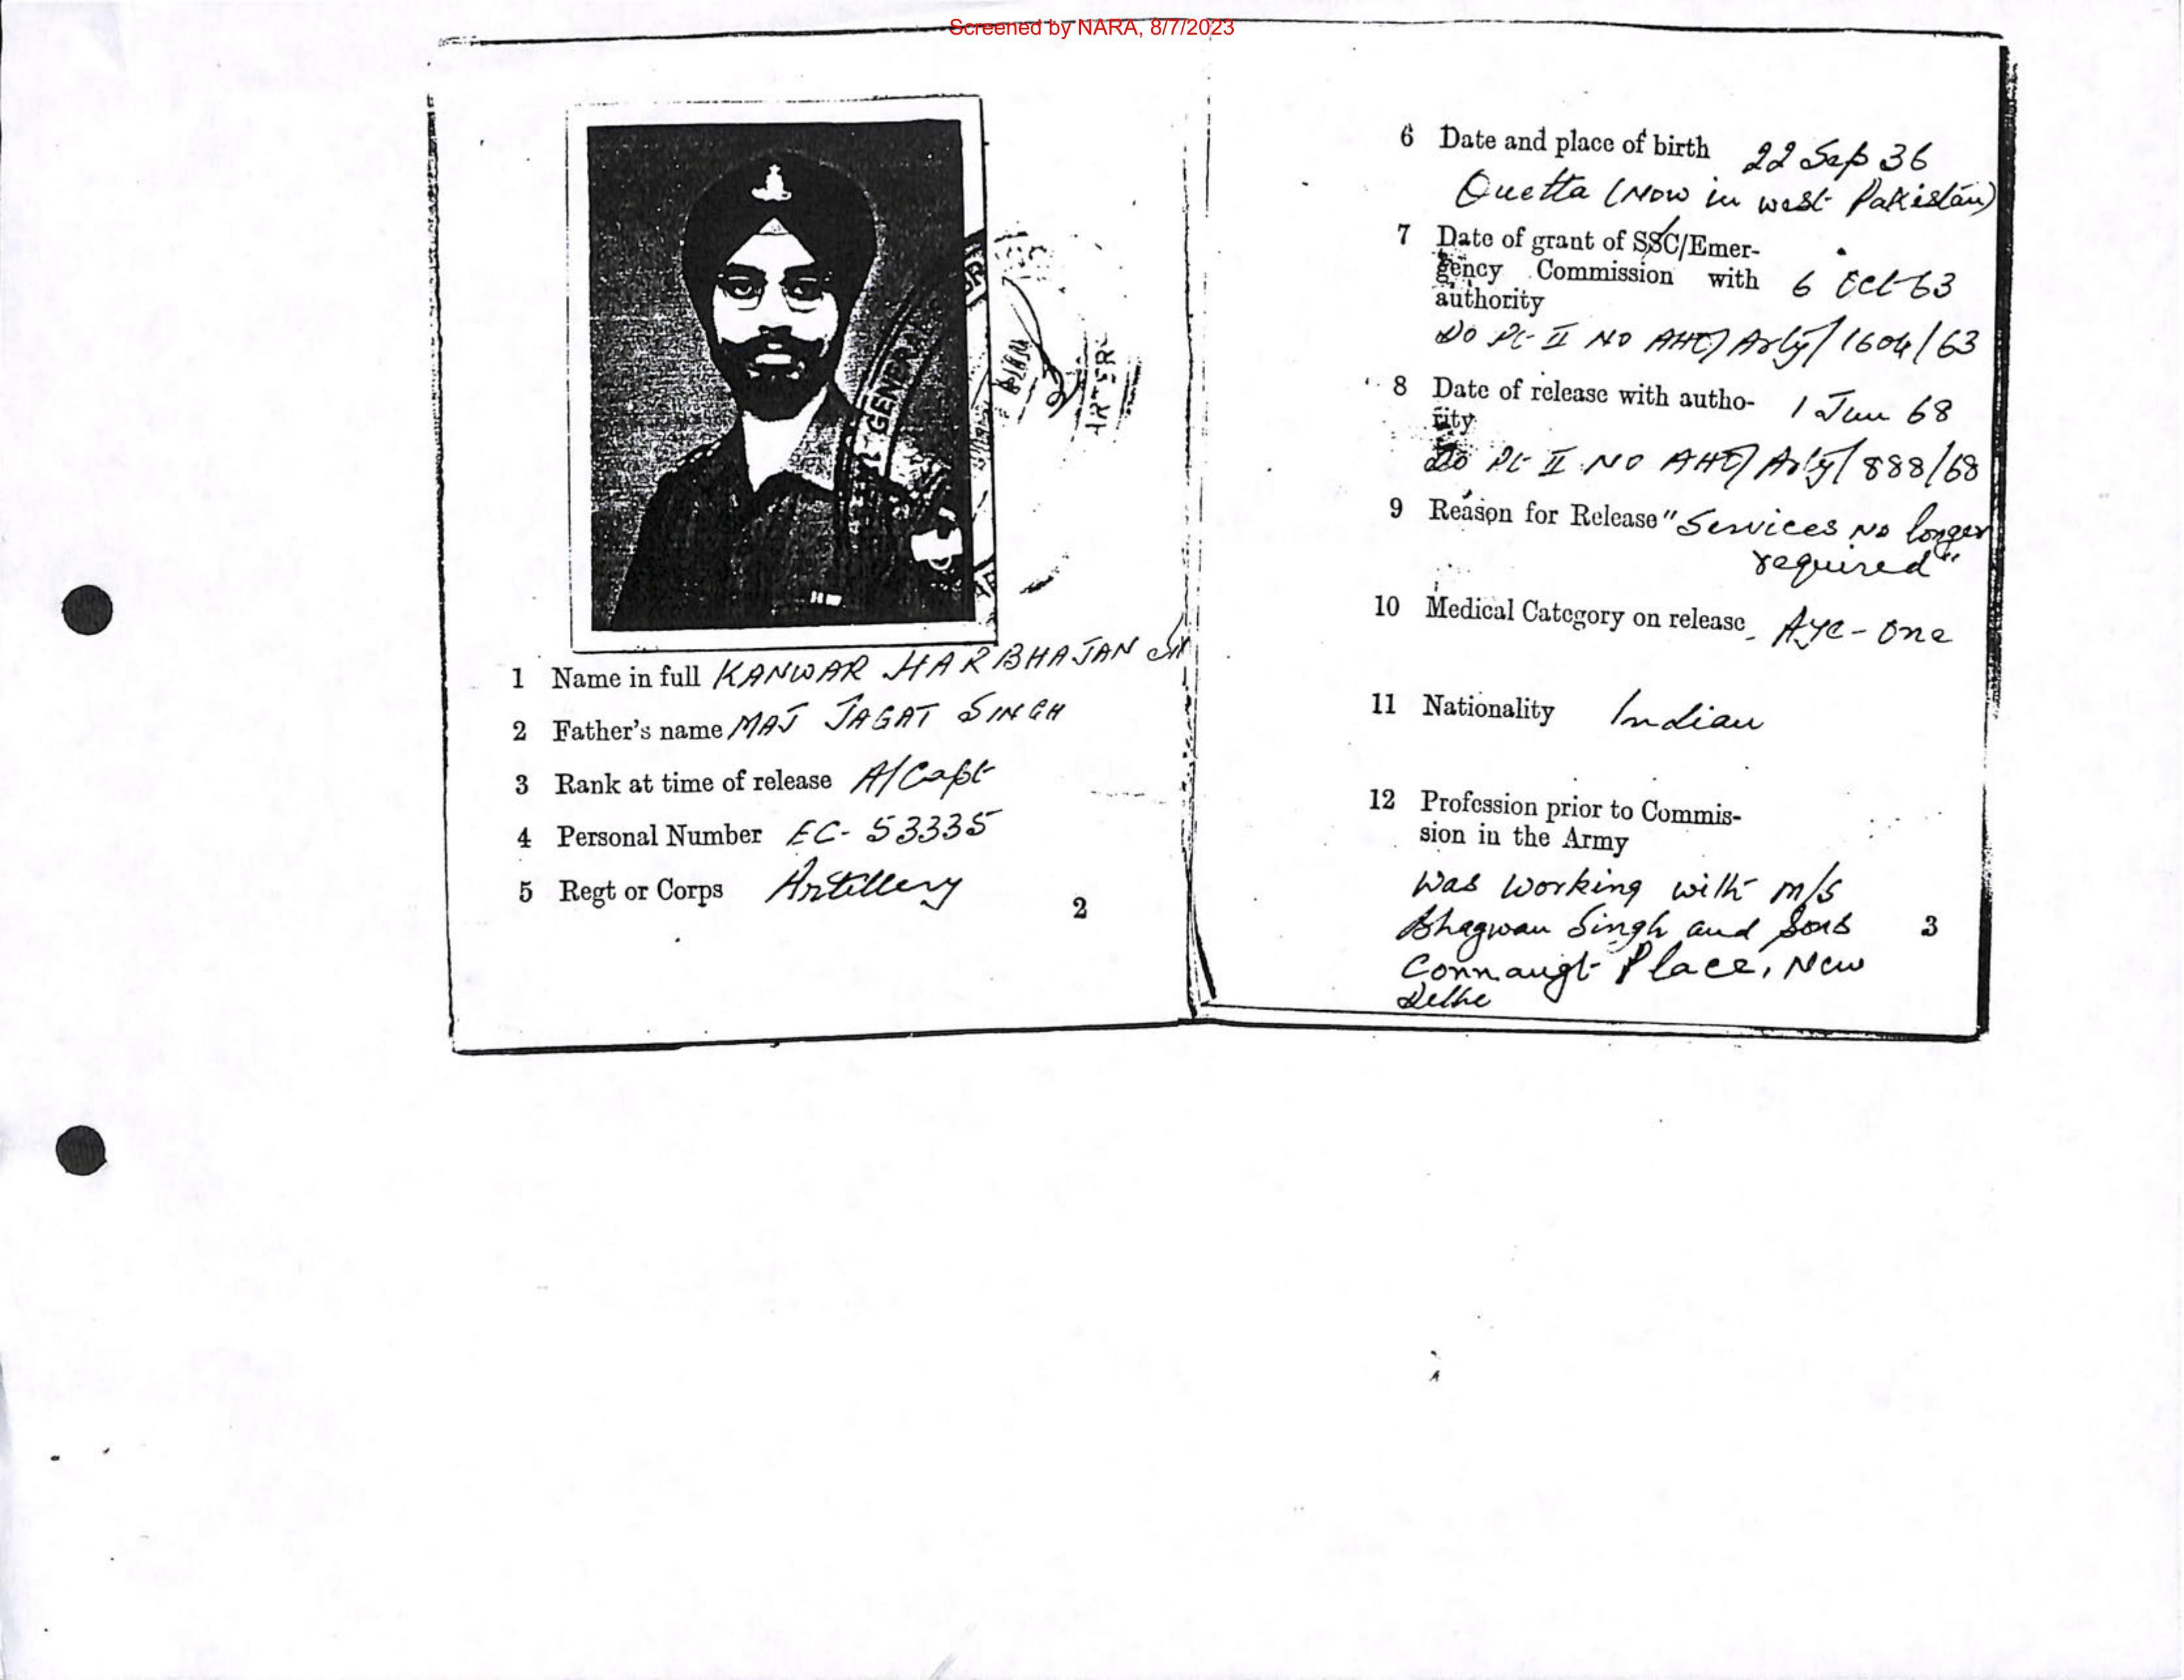 Screened by NARA, 8/7/2023
GENERAL
1 Name in full KANWAR HARBHAJAN
2 Father's name MAJ JAGAT SINGH
3 Rank at time of release A/Capt
4 Personal Number EC- 53335
5 Regt or Corps Artillery
2
6 Date and place of birth 22 Sep 36
Quetta (Now in west Pakistan)
7 Date of grant of SSC/Emer-
gency Commission with 6 Oct 63
authority
DO Pt II NO AHQ/Arty/1604/63
8 Date of release with autho- 1 Jun 68
rity
DO Pt II NO AHQ/Arty/888/68
9 Reason for Release "Services no longer
required"
10 Medical Category on release AYE-One
11 Nationality Indian
12 Profession prior to Commis-
sion in the Army
Was working with M/S
Bhagwan Singh and Sons
Connaugt Place, New
3